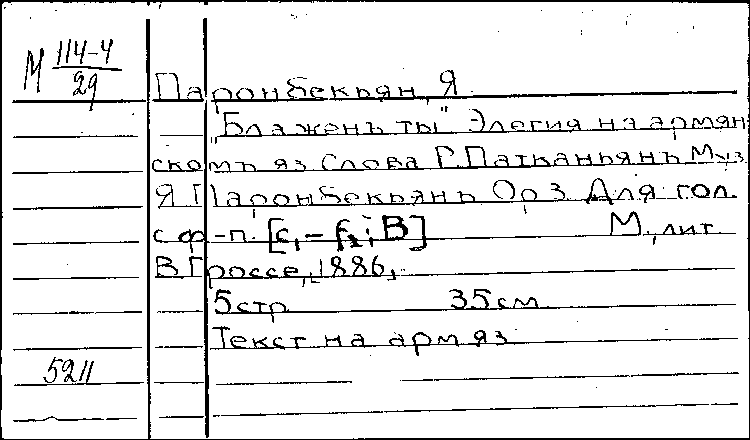 М 114-4/29
Паронбекьян, Я
„Блаженъ ты" Элегия на армян
скомъ яз Слова Г. Патканьянъ Муз
Я Паронбекьянъ Op 3 Для гол.
с ф-п. [c₁ – f₂; B] М., лит
В. Гроссе, 1886,
5 стр 35 см
Текст на арм яз
5211